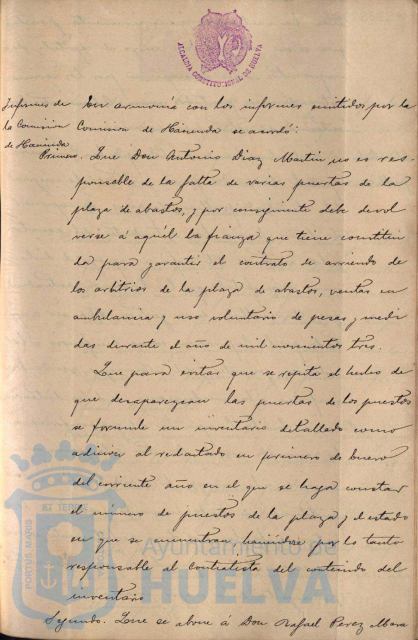 ALCALDIA CONSTITUCIONAL DE HUELVA
Informes de
la Comision
de Hacienda
En armonía con los informes emitidos por la
Comision de Hacienda se acordó:
Primero. Que Don Antonio Diaz Martin no es res-
ponsable de la falta de varias puertas de la
plaza de abastos, y por consiguiente debe devol
verse á aquél la fianza que tiene constitui
da para garantir el contrato de arriendo de
los arbitrios de la plaza de abastos, ventas en
ambulancia y uso voluntario de pesas y medi
das durante el año de mil novecientos tres.
Que para evitar que se repita el hecho de
que desaparezcan las puertas de los puestos
se formule un inventario detallado como
adicion al redactado en primero de Enero
del corriente año en el que se haga constar
el número de puestos de la plaza y el estado
en que se encuentran haciéndose por lo tanto
responsable al contratista del contenido del
inventario
Segundo. Que se abone á Don Rafael Perez Mora
PORTUS MARIS
ET TERRÆ
Ayuntamiento de
HUELVA